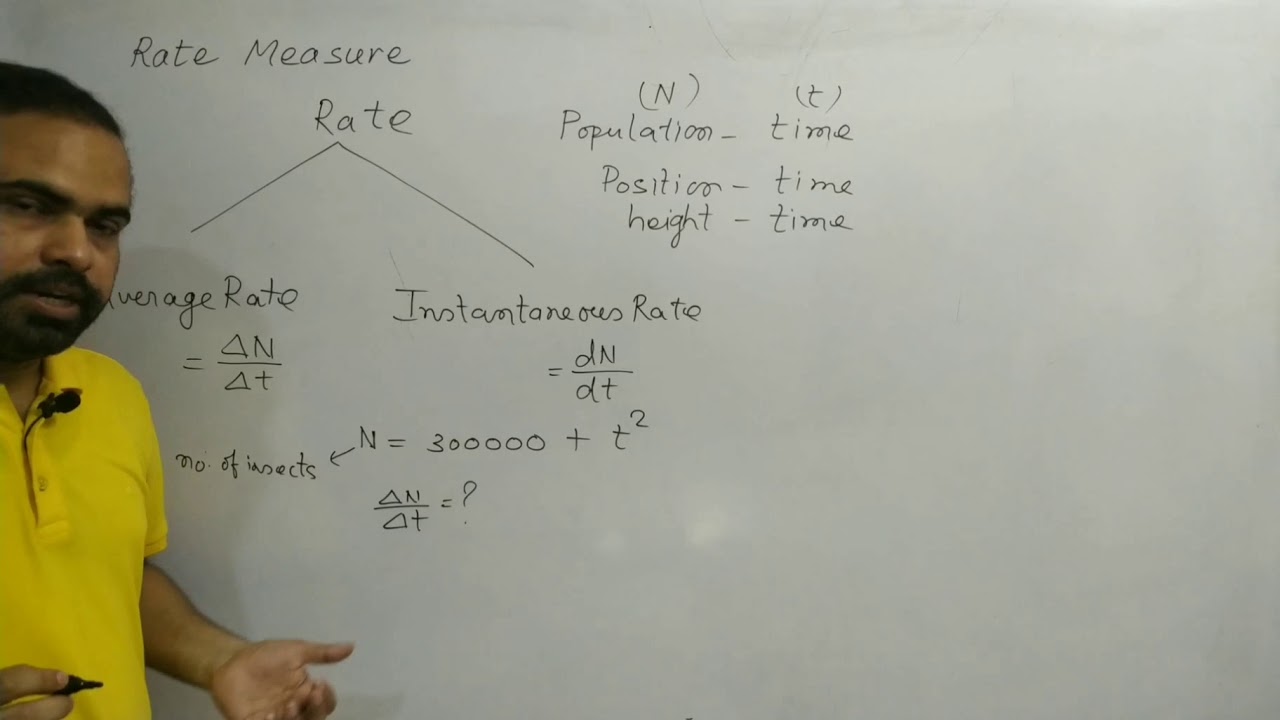 Rate Measure
Rate
(N) (t)
Population - time
Position - time
height - time
Average Rate
= ΔN/Δt
Instantaneous Rate
= dN/dt
N = 300000 + t²
no. of insects
ΔN/Δt = ?